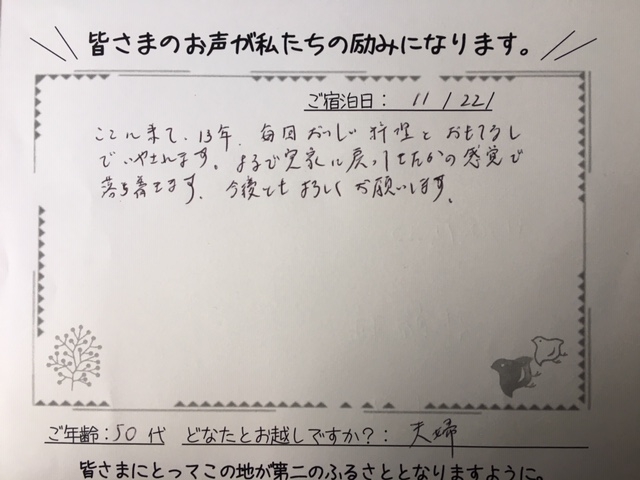 皆さまのお声が私たちの励みになります。
ご宿泊日: 11/22/
ここに来て、13年、毎回おいしい料理とおもてなし
でいやされます。まるで実家に戻ってきたかの感覚で
落ち着きます。今後ともよろしくお願いします。
ご年齢:50代 どなたとお越しですか?: 夫婦
皆さまにとってこの地が第二のふるさととなりますように。